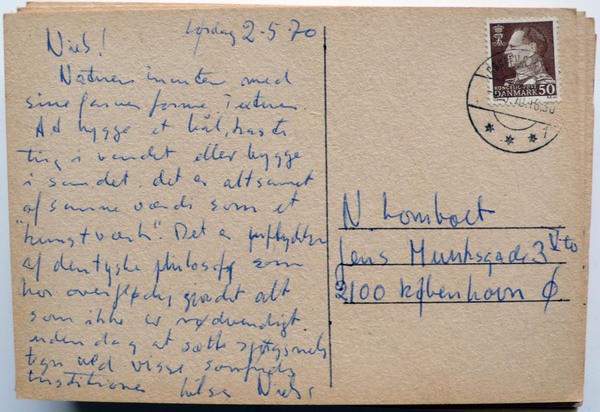 Lørdag 2-5-70
Niels!
Naturens monster med
sine farver forme Texturer.
At bygge et bål, kaste
ting i vandet eller bygge
i sandet. det er altsamet
af samme værdi som et
"kunstværk". Det er
af den tyske philosof som
har overflødig gjordt alt
som ikke er nødvendigt
uden dog at sætte spøgsmåls
tegn ved visse samfunds
institutioner hilsen Niels
KONGELIG POST 50
DANMARK
N Lomholt
Jens Munksgade 3 V tv
2100 København Ø